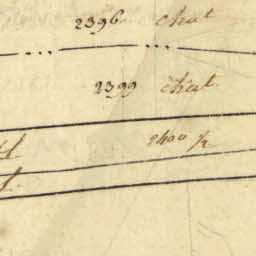 2396 chat
2399 chat
2400 1/2